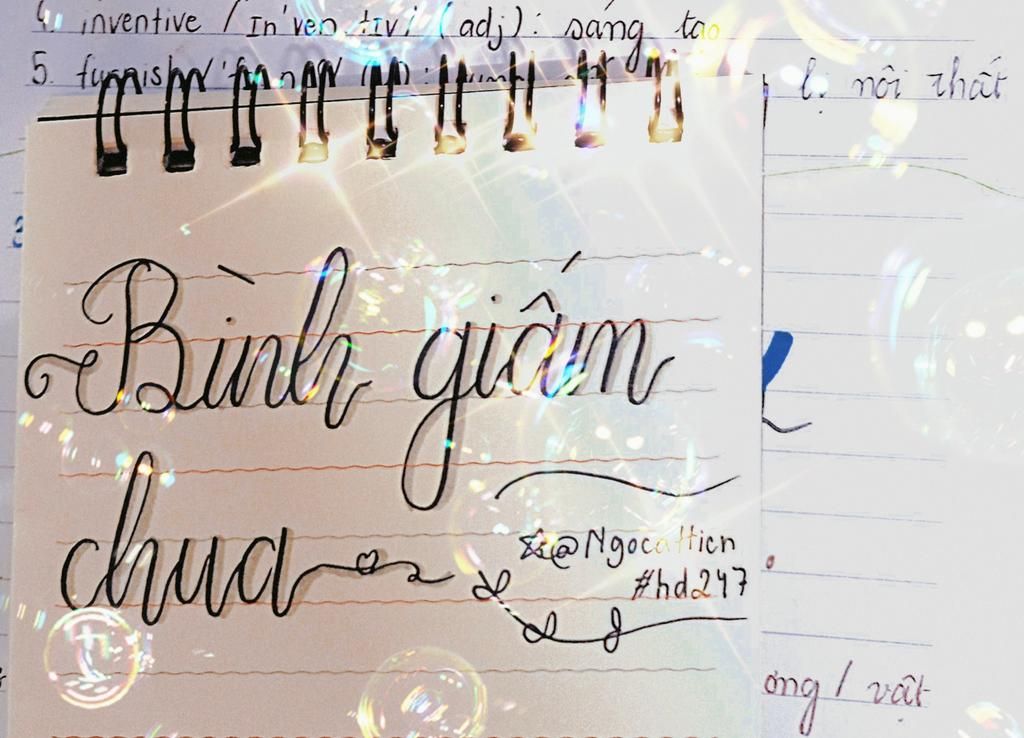 4. inventive / In'ven tIv / (adj): sáng tạo
5. furnish
l: nôi thất
Bình giấm
chua
@Ngocattien
#hd247
ơng / vật